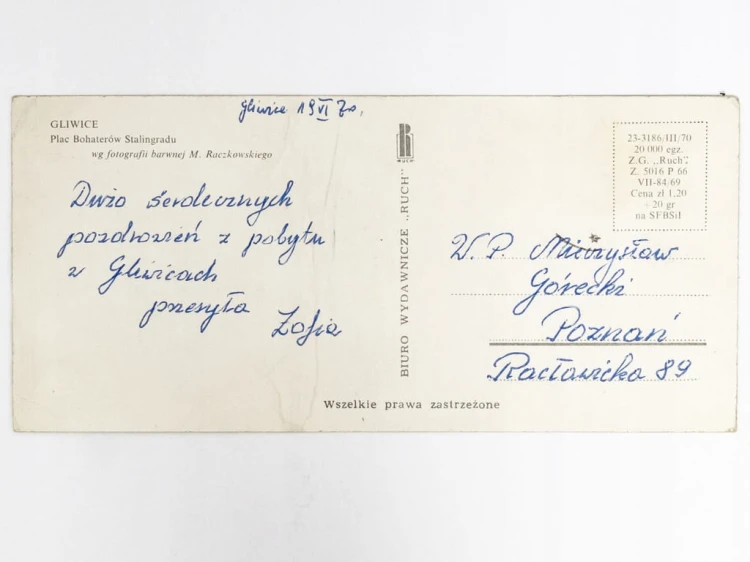 Gliwice 19 VI 70.
GLIWICE
Plac Bohaterów Stalingradu
wg fotografii barwnej M. Raczkowskiego
Dużo serdecznych
pozdrowień z pobytu
w Gliwicach
przesyła
Zofia
R
RUCH
BIURO WYDAWNICZE „RUCH"
23-3186/III/70
20 000 egz.
Z.G. „Ruch",
Z. 5016 P 66
VII-84/69
Cena zł 1,20
+ 20 gr
na SFBSiI
W. P. Mieczysław
Górecki
Poznań
Racławicka 89
Wszelkie prawa zastrzeżone